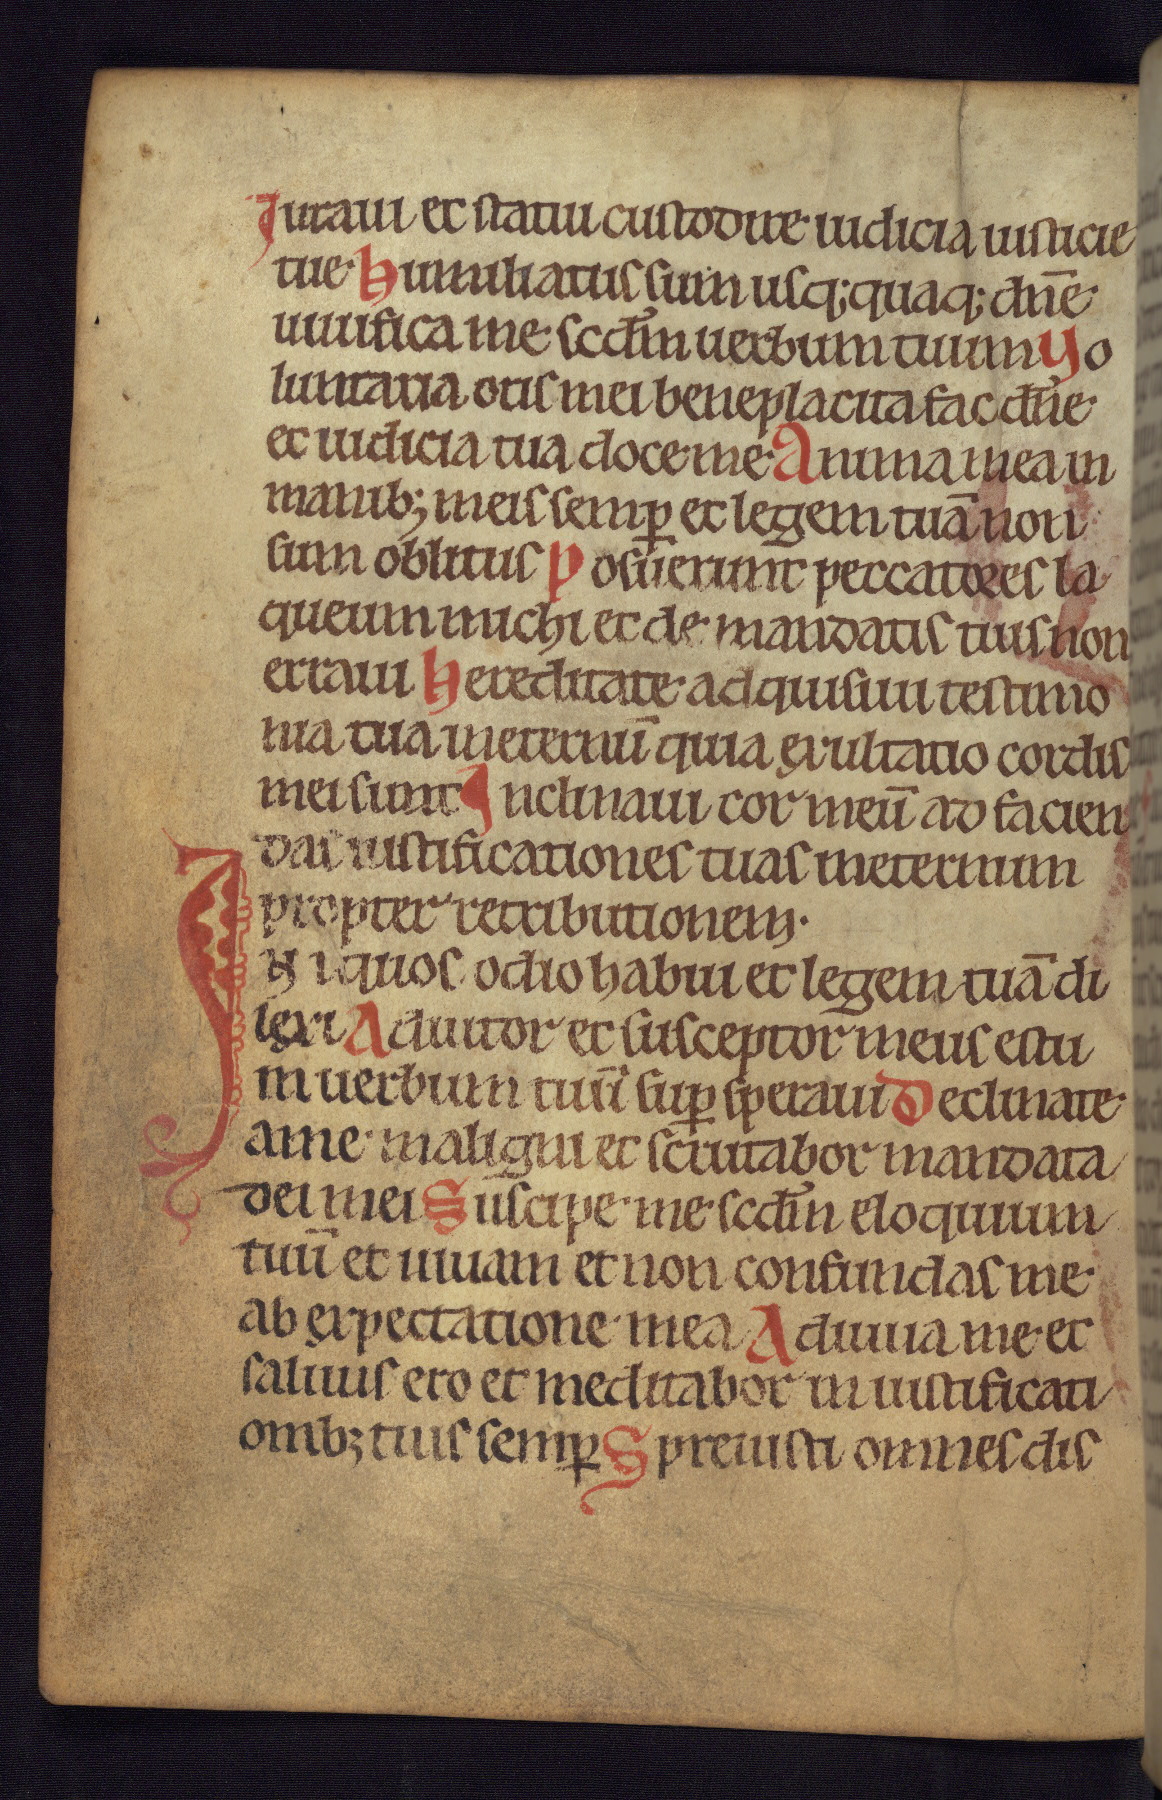 Iuraui et statui custodire iudicia iusticie
tue Humiliatus sum usq;quaq; dn̄e
uiuifica me scd̄m uerbum tuum Uo
luntaria oris mei beneplacita fac dn̄e
et iudicia tua doce me Anima mea in
manib; meis semp̱ et legem tuā non
sum oblitus Posuerunt peccatores la
queum michi et de mandatis tuis non
erraui Hereditate adquisiui testimo
nia tua in eternū quia exultatio cordis
mei sunt Inclinaui cor meū ad facien
das iustificationes tuas in eternum
propter retributionem.
INiquos odio habui et legem tuā di
lexi Adiutor et susceptor meus es tu
in uerbum tuū sup̱ speraui Declinate
a me maligni et scrutabor mandata
dei mei Suscipe me scd̄m eloquium
tuū et uiuam et non confundas me
ab expectatione mea Adiuua me et
saluus ero et meditabor in iustificati
onib; tuis semp̱ Spreuisti omnes dis